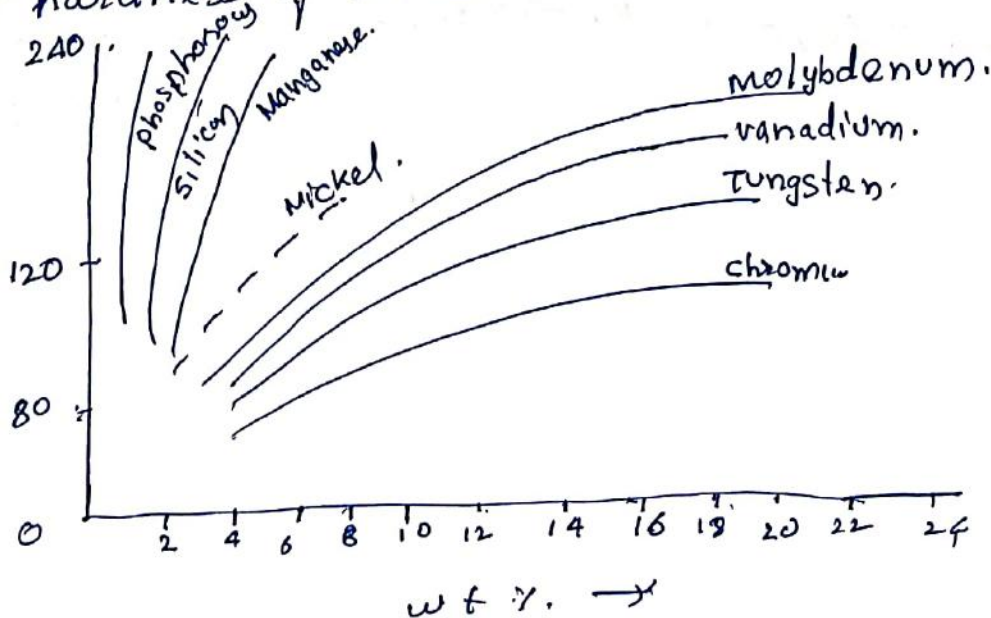 240
phosphorous
silicon
Manganese.
Nickel.
Molybdenum.
vanadium.
Tungsten.
chromiu
120
80
0
2 4 6 8 10 12 14 16 18 20 22 24
wt %. →